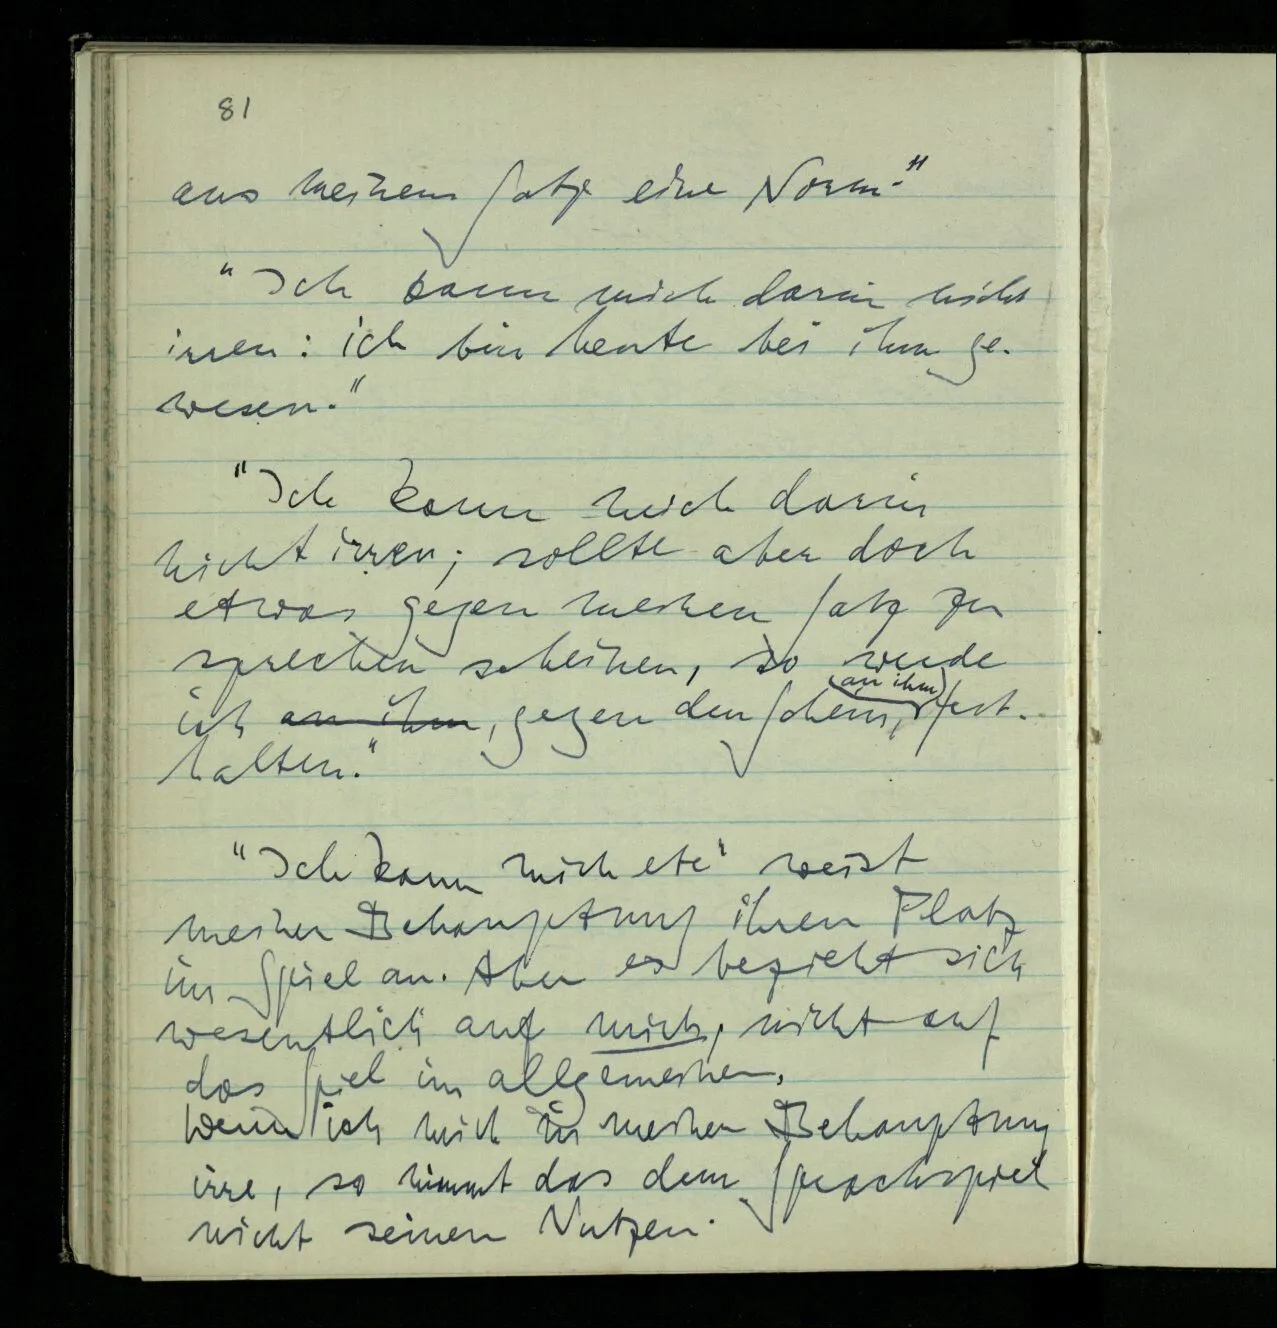 81
aus meinem Satze eine Norm."
"Ich kann mich darin nicht
irren: ich bin heute bei ihm ge-
wesen."
"Ich kann mich darin
nicht irren; sollte aber doch
etwas gegen meinen Satz zu
sprechen scheinen, so werde
ich an ihm, gegen den Schein, (an ihm) fest-
halten."
"Ich kann mich etc" weist
meiner Behauptung ihren Platz
im Spiel an. Aber es bezieht sich
wesentlich auf mich, nicht auf
das Spiel im allgemeinen.
Wenn ich mich in meiner Behauptung
irre, so nimmt das dem Sprachspiel
nicht seinen Nutzen.